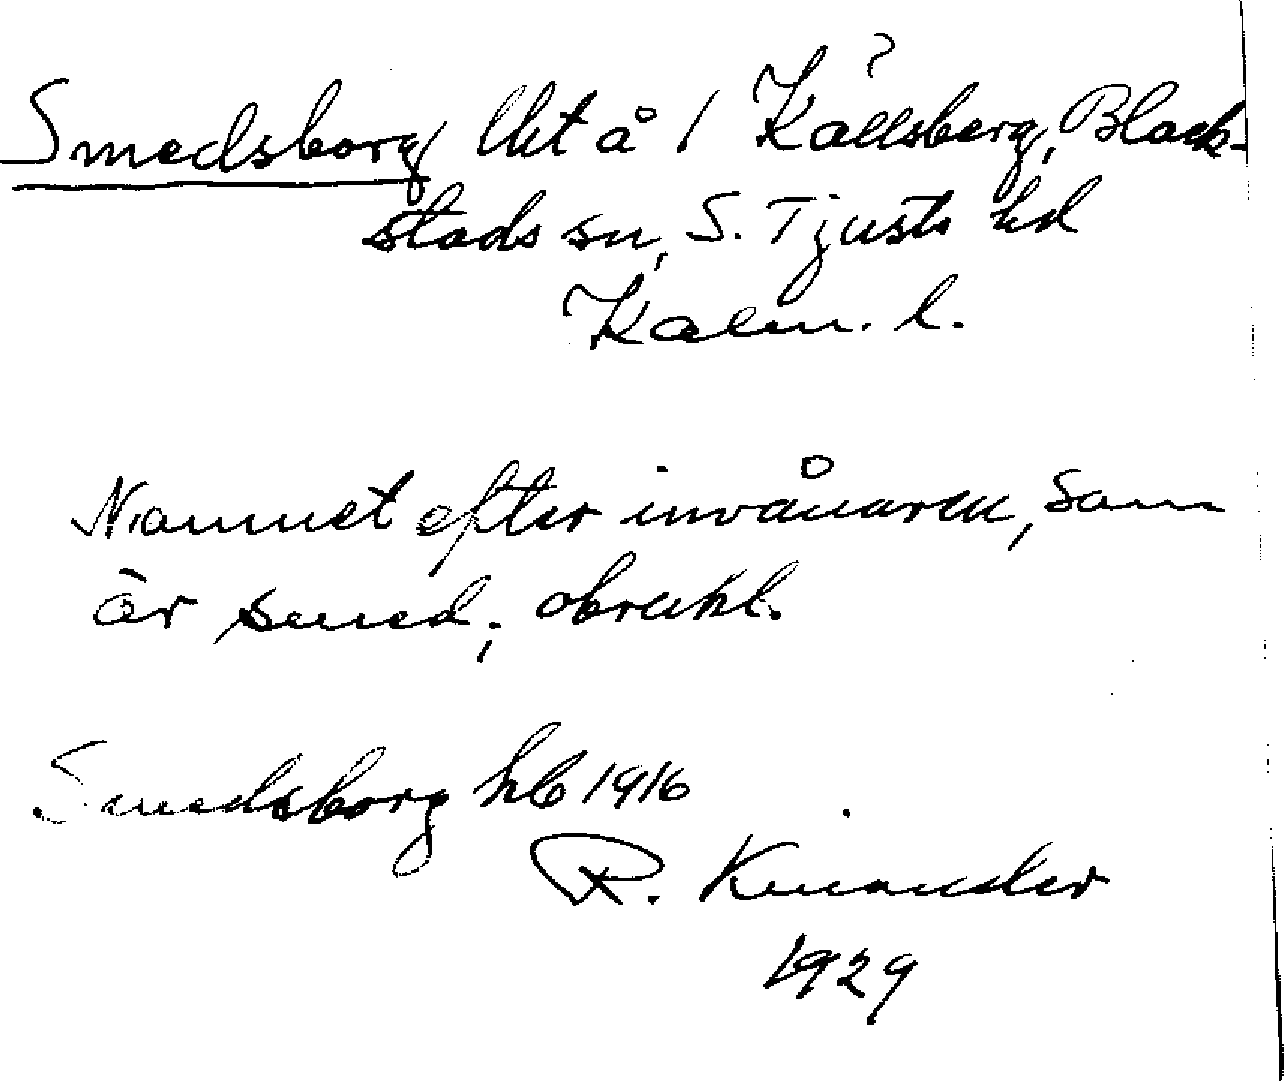 Smedsborg lht å 1 Källsberg, Black-
stads sn, S. Tjusts hd
Kalm. l.
Namnet efter invånaren, som
är smed; obrukl.
Smedsborg hb 1916
R. Kinander
1929